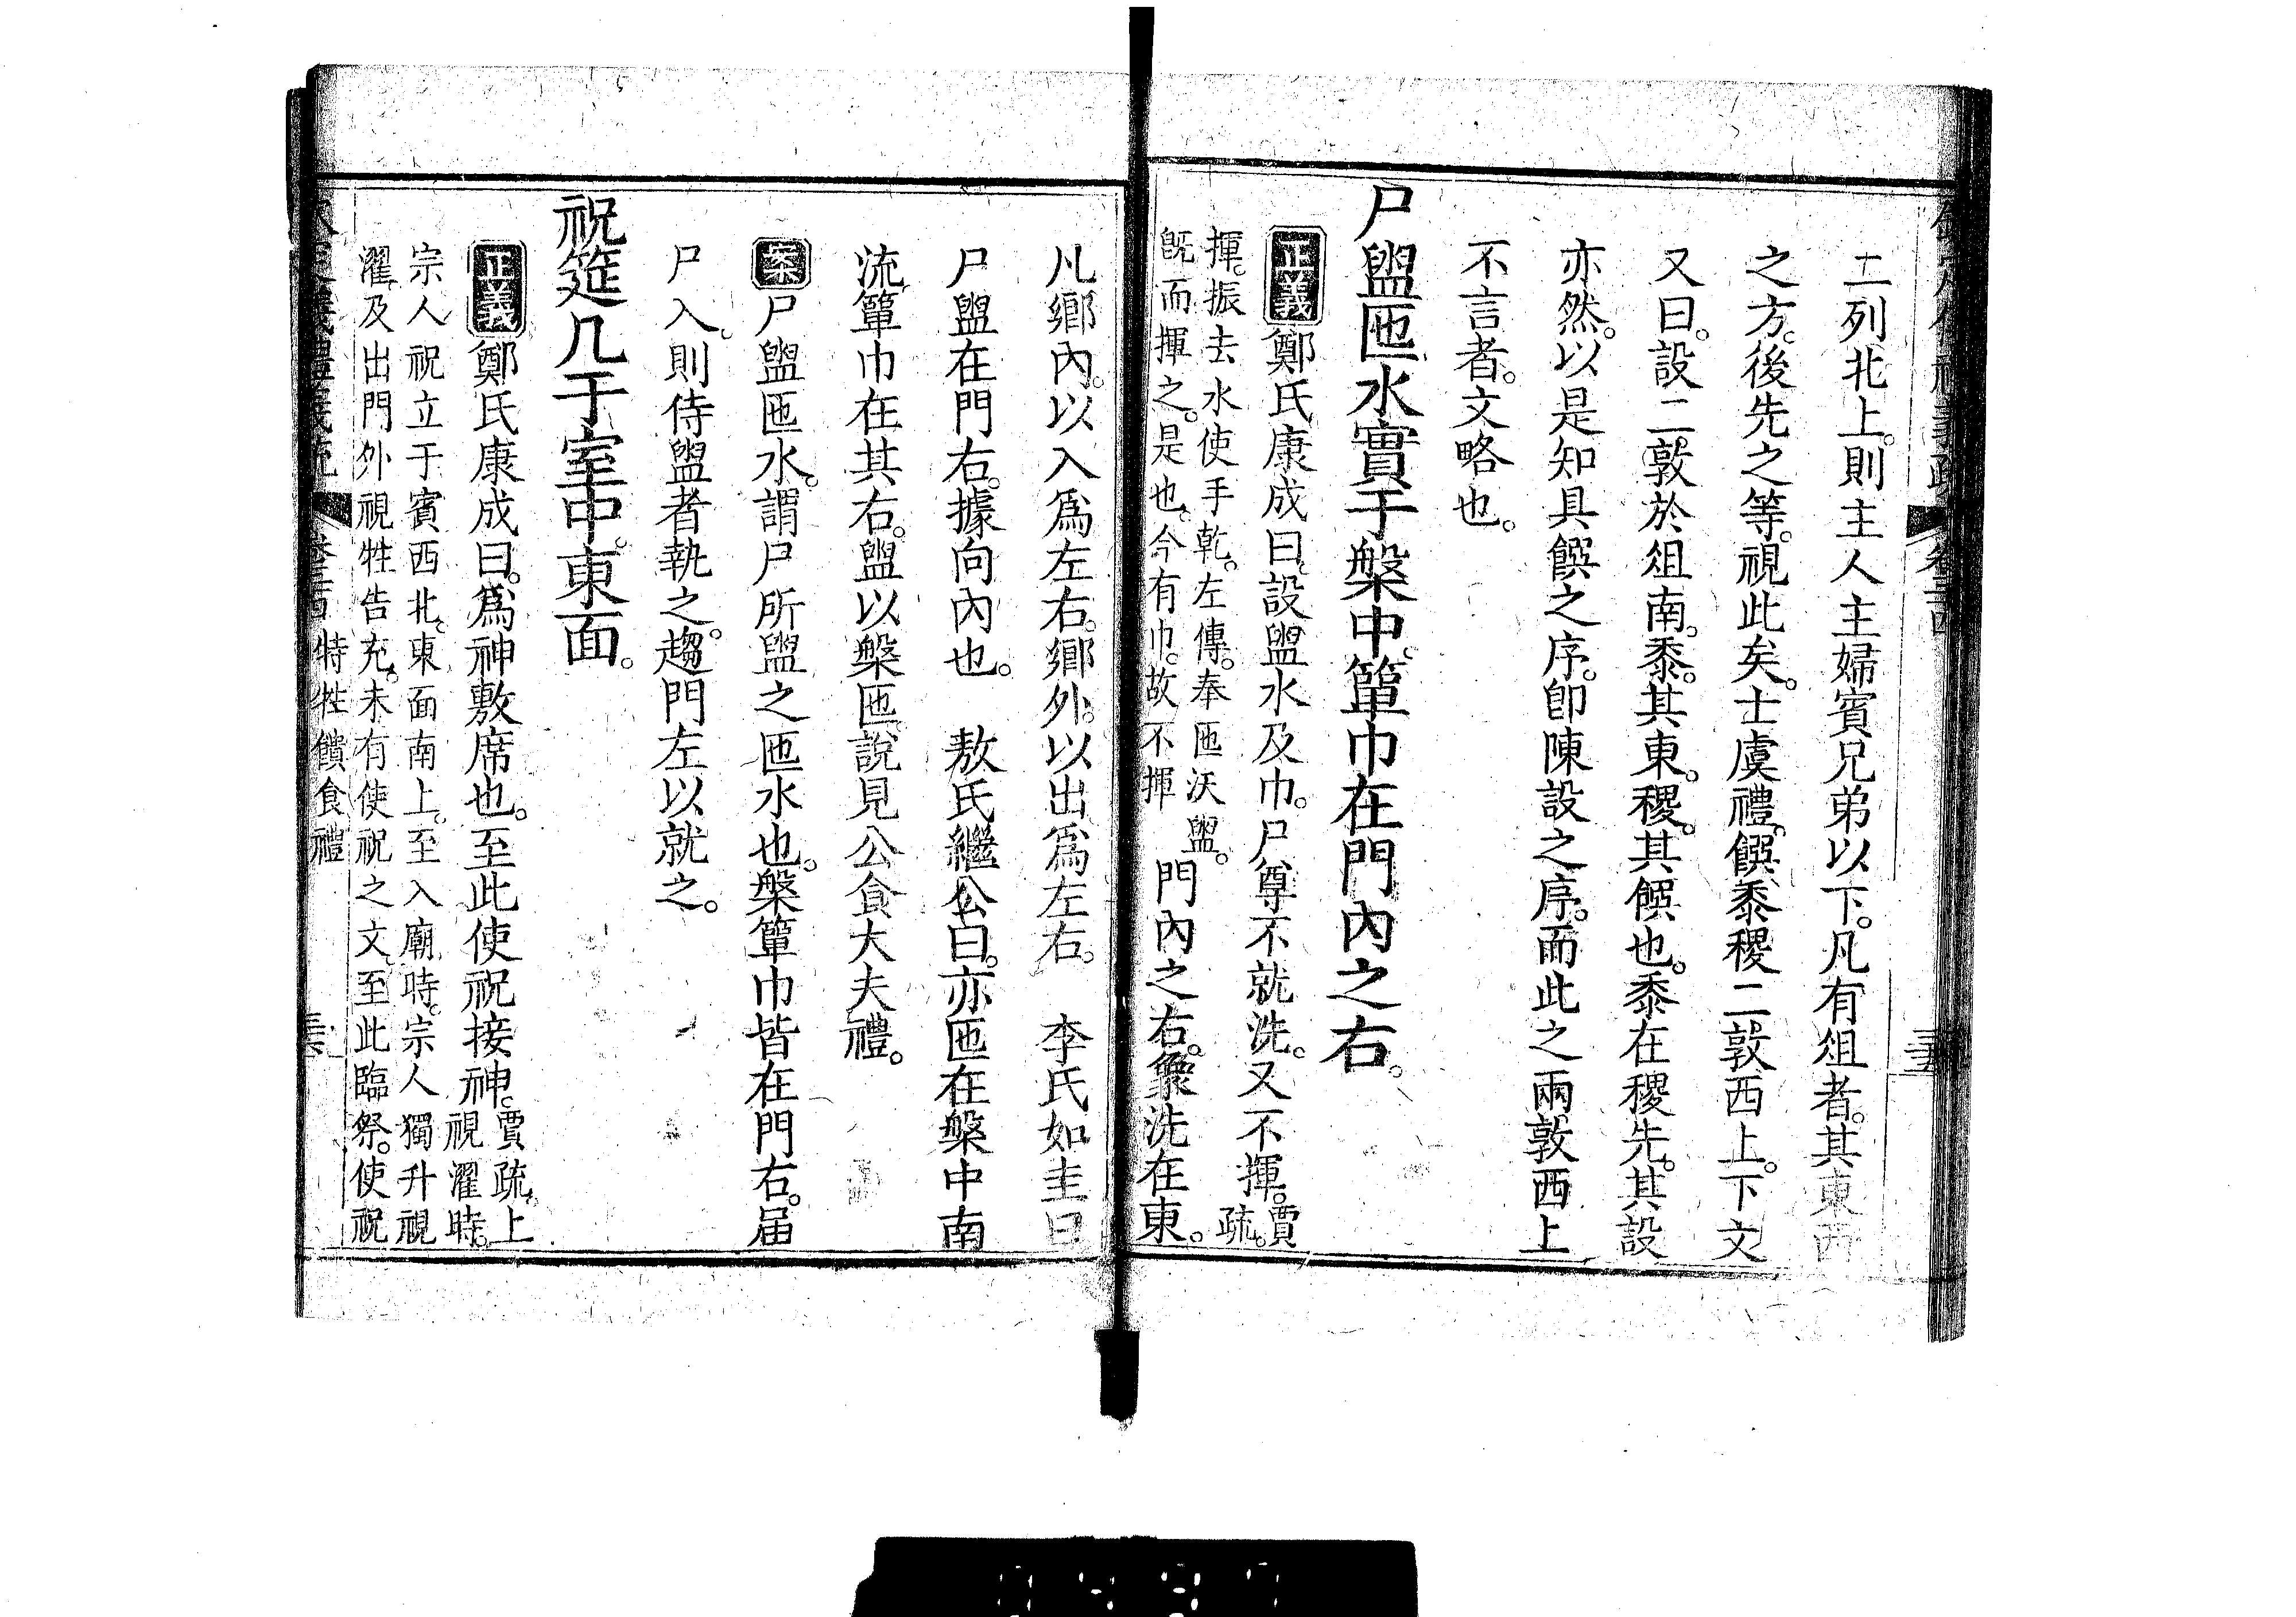 二列北上。則主人主婦賓兄弟以下。凡有俎者。其東西
之方。後先之等。視此矣。士虞禮。饌黍稷二敦西上。下文
又曰。設二敦於俎南。黍。其東。稷。其饌也。黍在稷先。其設
亦然。以是知具饌之序。卽陳設之序。而此之兩敦西上
不言者。文略也。
尸盥匜水實于槃中。簞巾在門內之右。
正義鄭氏康成曰。設盥水及巾。尸尊不就洗。又不揮。賈疏。
揮。振去水使手乾。左傳。奉匜沃盥。
旣而揮之。是也。今有巾。故不揮
門內之右。象洗在東。
凡鄉內。以入爲左右。鄉外。以出爲左右。　李氏如圭曰
尸盥在門右。據向內也。　敖氏繼公曰。亦匜在槃中南
流。簞巾在其右。盥以槃匜。說見公食大夫禮。
案尸盥匜水。謂尸所盥之匜水也。槃簞巾皆在門右。届
尸入。則侍盥者執之。趨門左以就之。
祝筵几于室中。東面。
正義鄭氏康成曰。爲神敷席也。至此使祝接神。賈疏。上
視濯時。
宗人祝立于賓西北。東面南上。至入廟時。宗人獨升視
濯。及出門外視牲告充。未有使祝之文。至此臨祭。使祝
特牲饋食禮